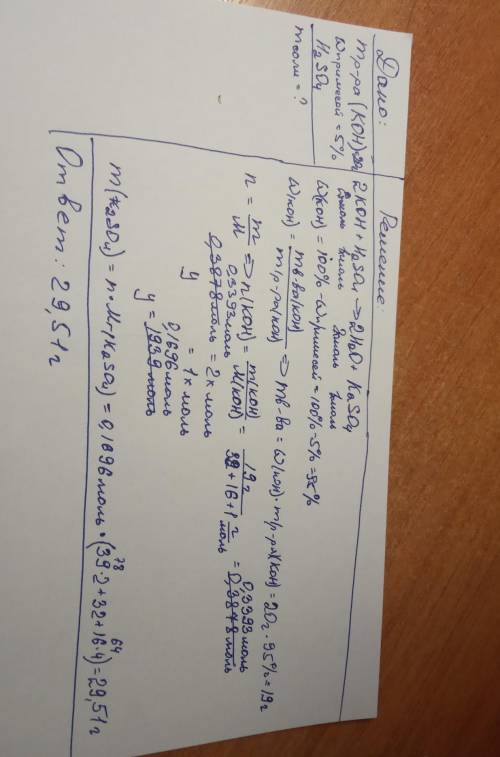 Дано:
mр-ра (KOH)=20г
ωпримесей = 5%
H₂SO₄
mсоли = ?
Решение:
2KOH + H₂SO₄ => 2H₂O + K₂SO₄
2моль 1моль 2моль 1моль
ω(KOH) = 100% - ωпримесей = 100% - 5% = 95%
ω(KOH) = mв-ва(KOH) / mр-ра(KOH) => mв-ва = ω(KOH) · mр-ра(KOH) = 20г · 95% = 19г
n = m / M => n(KOH) = m(KOH) / M(KOH) = 19г / 39 + 16 + 1 г/моль = 0,3393моль
0,3393моль = 2х моль
y = 1х моль
y = 0,1696моль
m(K₂SO₄) = n · Mr(K₂SO₄) = 0,1696моль · (39·2 + 32 + 16·4) = 29,51г
78 64
Ответ: 29,51г